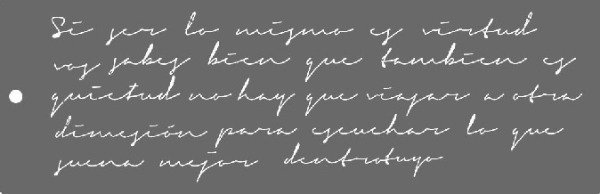 Si ser lo mismo es virtud
vos sabes bien que tambien es
quietud no hay que viajar a otra
dimesión para escuchar lo que
suena mejor dentrotuyo